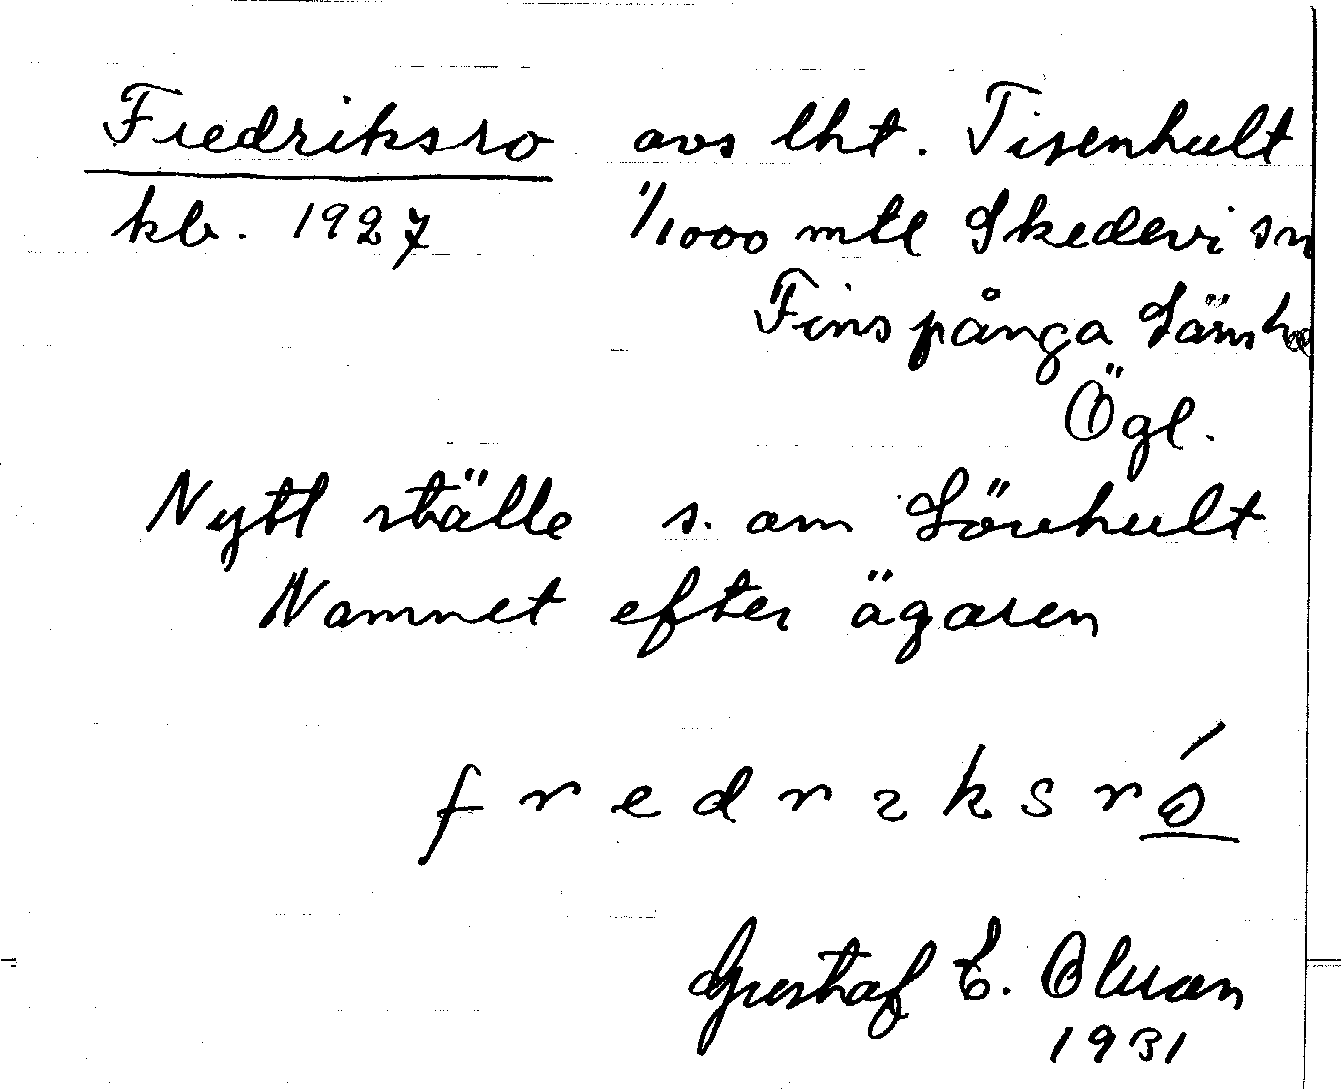 Fredriksro avs lht. Tisenhult
kb. 1927 1/1000 mtl Skedevi sn
Finspånga läns
Ögl.
Nytt ställe s. om Lövhult
Namnet efter ägaren
fredrıksró
Gustaf E. Olsson
1931